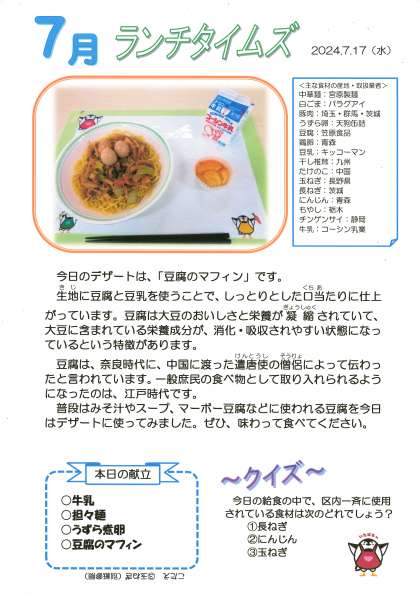 7月 ランチタイムズ
2024.7.17（水）
＜主な食材の産地・取扱業者＞
中華麺：宮原製麺
白ごま：パラグアイ
豚肉：埼玉・群馬・茨城
うずら卵：天狗缶詰
豆腐：笠原食品
鶏卵：青森
豆乳：キッコーマン
干し椎茸：九州
たけのこ：中国
玉ねぎ：長野県
長ねぎ：茨城
にんじん：青森
もやし：栃木
チンゲンサイ：静岡
牛乳：コーシン乳業
今日のデザートは、「豆腐のマフィン」です。
生地に豆腐と豆乳を使うことで、しっとりとした口当たりに仕上
がっています。豆腐は大豆のおいしさと栄養が凝縮されていて、
大豆に含まれている栄養成分が、消化・吸収されやすい状態になっ
ているという特徴があります。
豆腐は、奈良時代に、中国に渡った遣唐使の僧侶によって伝わっ
たと言われています。一般庶民の食べ物として取り入れられるよう
になったのは、江戸時代です。
普段はみそ汁やスープ、マーボー豆腐などに使われる豆腐を今日
はデザートに使ってみました。ぜひ、味わって食べてください。
本日の献立
○牛乳
○担々麺
○うずら煮卵
○豆腐のマフィン
～クイズ～
今日の給食の中で、区内一斉に使用
されている食材は次のどれでしょう？
①長ねぎ
②にんじん
③玉ねぎ
こたえ ③玉ねぎ